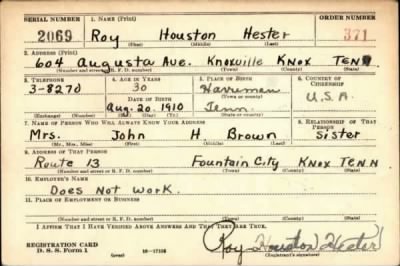 SERIAL NUMBER 1. NAME (Print) ORDER NUMBER
2069 Roy Houston Hester 371
(First) (Middle) (Last)
2. ADDRESS (Print)
604 Augusta Ave. Knoxville Knox TENN.
(Number and street or R. F. D. number) (Town) (County) (State)
3. TELEPHONE 4. AGE IN YEARS 5. PLACE OF BIRTH 6. COUNTRY OF CITIZENSHIP
3-8270 30 Harriman
DATE OF BIRTH (Town or county) U.S.A.
Aug. 20. 1910 Tenn
(Exchange) (Number) (Mo.) (Day) (Yr.) (State or country)
7. NAME OF PERSON WHO WILL ALWAYS KNOW YOUR ADDRESS 8. RELATIONSHIP OF THAT PERSON
Mrs. John H. Brown Sister
(Mr., Mrs., Miss) (First) (Middle) (Last)
9. ADDRESS OF THAT PERSON
Route 13 Fountain City Knox TENN
(Number and street or R. F. D. number) (Town) (County) (State)
10. EMPLOYER'S NAME
Does Not Work.
11. PLACE OF EMPLOYMENT OR BUSINESS
(Number and street or R. F. D. number) (Town) (County) (State)
I AFFIRM THAT I HAVE VERIFIED ABOVE ANSWERS AND THAT THEY ARE TRUE.
REGISTRATION CARD
D. S. S. Form 1 (over) Roy Houston Hester
(Registrant's signature)